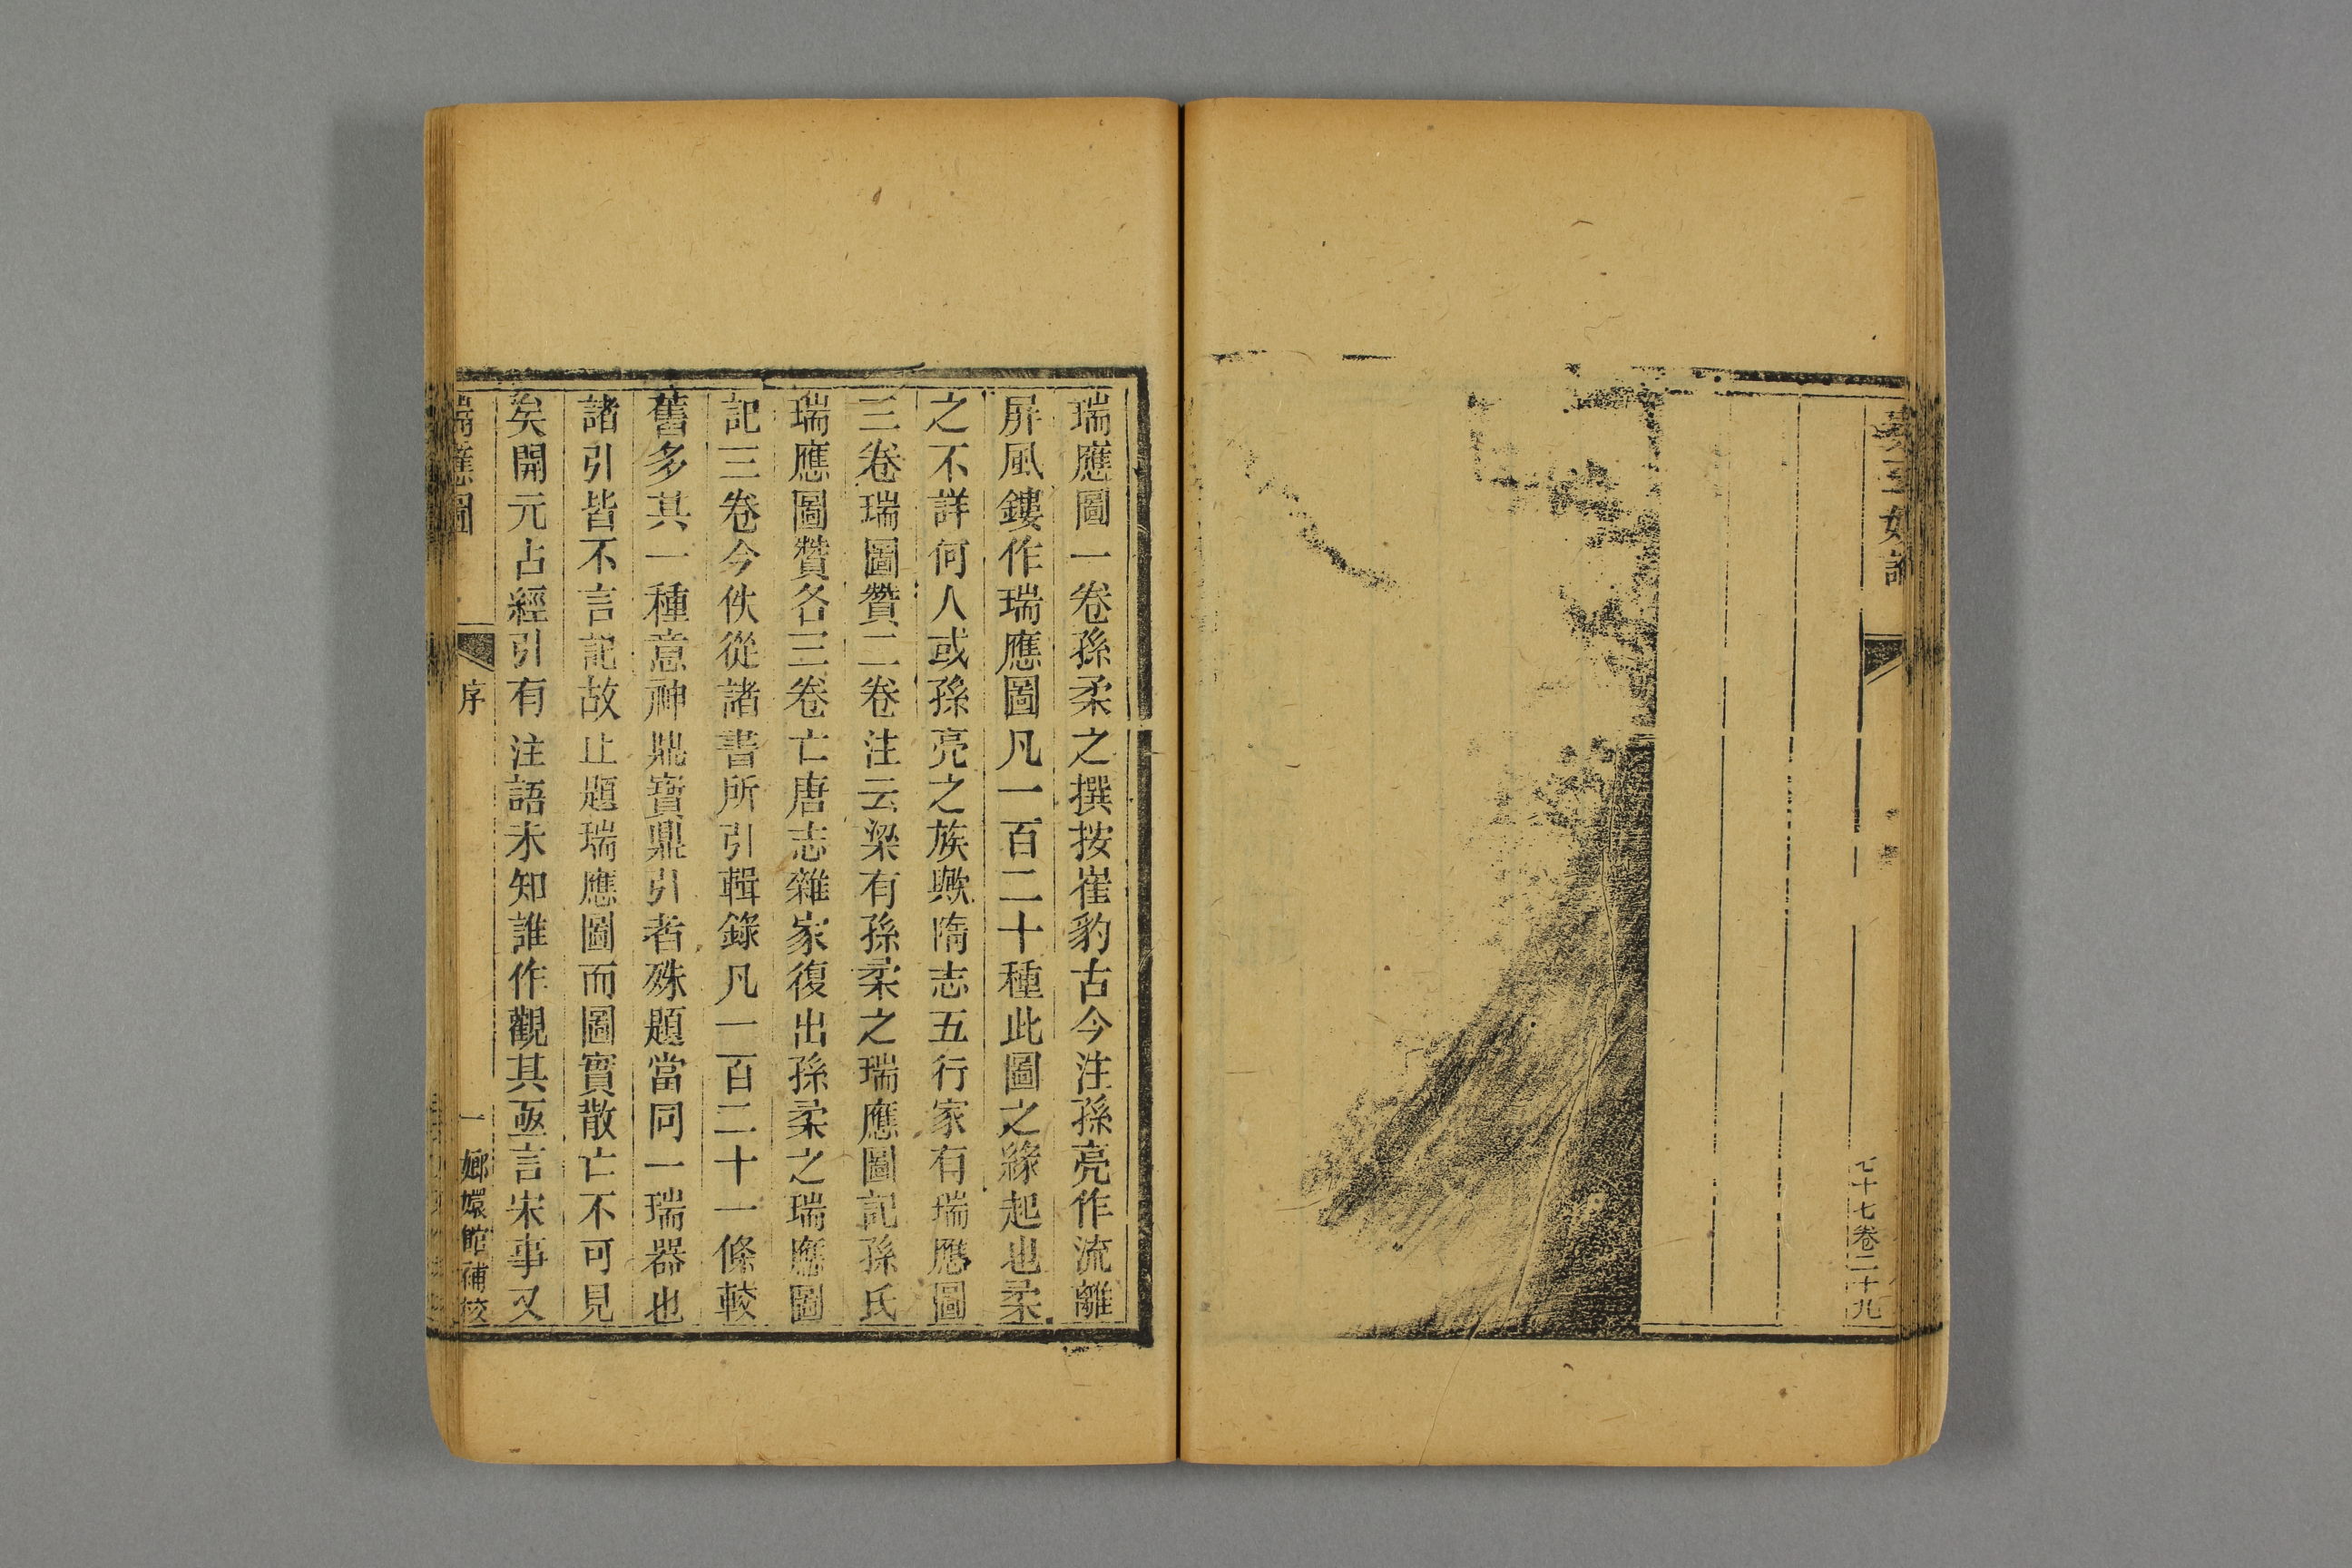 七十七卷二十九
瑞應圖一卷孫柔之撰按崔豹古今注孫亮作流離
屏風鏤作瑞應圖凡一百二十種此圖之緣起也柔
之不詳何人或孫亮之族歟隋志五行家有瑞應圖
三卷瑞圖贊二卷注云梁有孫柔之瑞應圖記孫氏
瑞應圖贊各三卷亡唐志雜家復出孫柔之瑞應圖
記三卷今佚從諸書所引輯錄凡一百二十一條較
舊多其一種意神鼎寶鼎引者殊題當同一瑞器也
諸引皆不言記故止題瑞應圖而圖實散亡不可見
矣開元占經引有注語未知誰作觀其亟言宋事又
瑞應圖
序
一
嫏嬛館補校